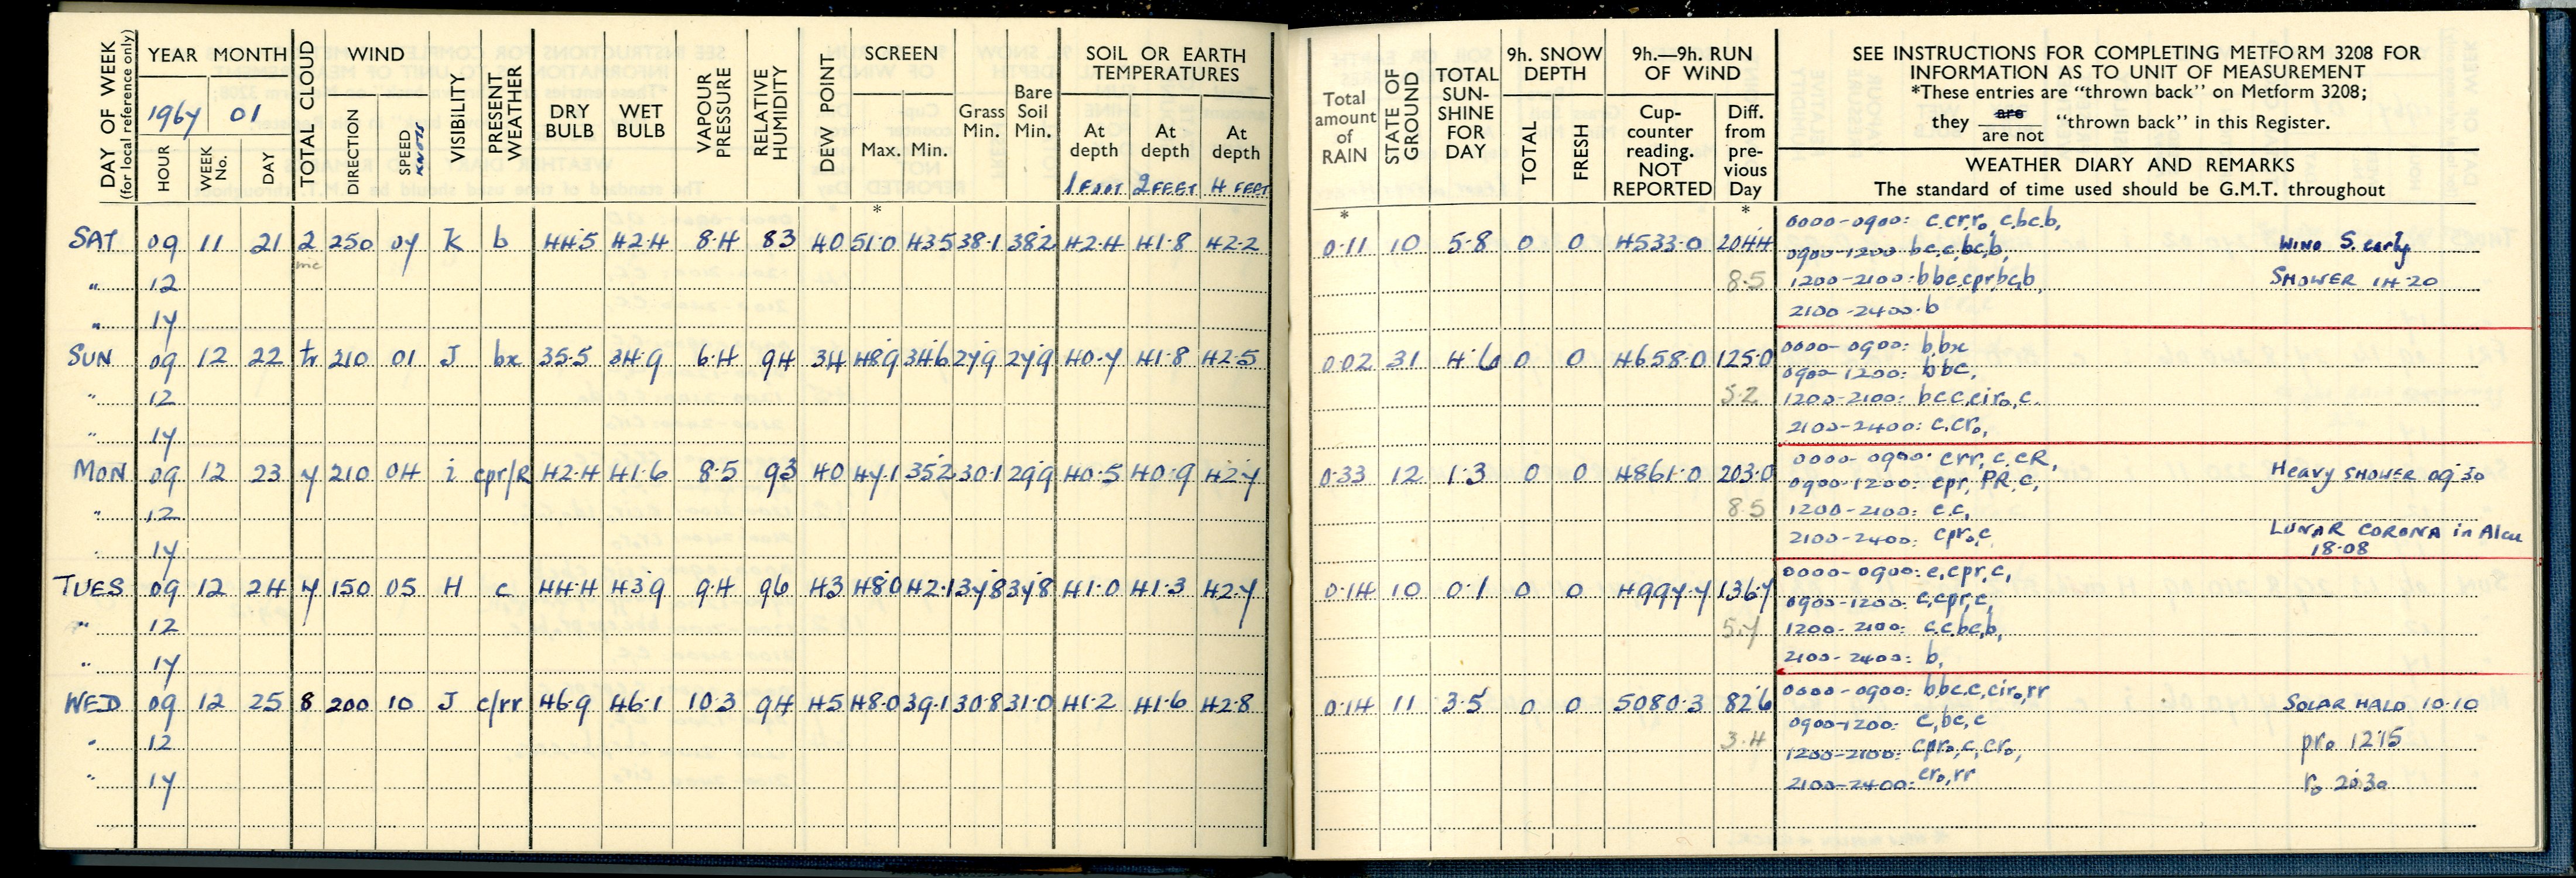 DAY OF WEEK
(for local reference only)
YEAR MONTH
1967 01
HOUR
WEEK No.
DAY
TOTAL CLOUD
WIND
DIRECTION
SPEED KNOTS
VISIBILITY
PRESENT WEATHER
DRY BULB
WET BULB
VAPOUR PRESSURE
RELATIVE HUMIDITY
DEW POINT
SCREEN
Max. Min.
*
Grass Min.
Bare Soil Min.
SOIL OR EARTH
TEMPERATURES
At depth 1 FOOT
At depth 2 FEET
At depth 4 FEET
SAT 09 11 21 2 250 07 K b 44.5 42.4 8.4 83 40 51.0 43.5 38.1 38.2 42.4 41.8 42.2
" 12
" 17
SUN 09 12 22 tr 210 01 J bx 35.5 34.9 6.4 94 34 48.9 34.6 27.9 27.9 40.7 41.8 42.5
" 12
" 17
MON 09 12 23 7 210 04 i cpr/R 42.4 41.6 8.5 93 40 47.1 35.2 30.1 29.9 40.5 40.9 42.7
" 12
" 17
TUES 09 12 24 7 150 05 H c 44.4 43.9 9.4 96 43 48.0 42.1 37.8 37.8 41.0 41.3 42.7
" 12
" 17
WED 09 12 25 8 200 10 J c/rr 46.9 46.1 10.3 94 45 48.0 39.1 30.8 31.0 41.2 41.6 42.8
" 12
" 17
Total amount of RAIN
*
STATE OF GROUND
TOTAL SUN-SHINE FOR DAY
9h. SNOW DEPTH
TOTAL
FRESH
9h.—9h. RUN OF WIND
Cup-counter reading. NOT REPORTED
Diff. from pre-vious Day
*
SEE INSTRUCTIONS FOR COMPLETING METFORM 3208 FOR
INFORMATION AS TO UNIT OF MEASUREMENT
*These entries are "thrown back" on Metform 3208;
they are / are not "thrown back" in this Register.
WEATHER DIARY AND REMARKS
The standard of time used should be G.M.T. throughout
0000-0900: c.crr,ro, c,bc,b,
0.11 10 5.8 0 0 4533.0 204.4 0900-1200 bc,c,bc,b, WIND S. early
8.5 1200-2100: b bc.cprbc,b, SHOWER 14.20
2100-2400.b
0.02 31 4.6 0 0 4658.0 125.0 0000-0900: b,bx
0900-1200: b bc,
5.2 1200-2100: bc c,ciro,c.
2100-2400: c,cro,
0.33 12 1.3 0 0 4861.0 203.0 0000-0900: crr, c, cR, Heavy SHOWER 09.30
0900-1200: cpr, PR, c,
8.5 1200-2100: c.c,
2100-2400: cpro,c LUNAR CORONA in Alcu
18.08
0.14 10 0.1 0 0 4997.7 136.7 0000-0900: c,cpr,c,
0900-1200: c,cpr,c,
5.7 1200-2100: c.c.bc,b,
2100-2400: b,
0.14 11 3.5 0 0 5080.3 82.6 0000-0900: b,bc.c,ciro,rr SOLAR HALO 10.10
0900-1200: c,bc,c
3.4 1200-2100: cpro,c,cro, pro 12.15
2100-2400: cro,rr ro 20.30